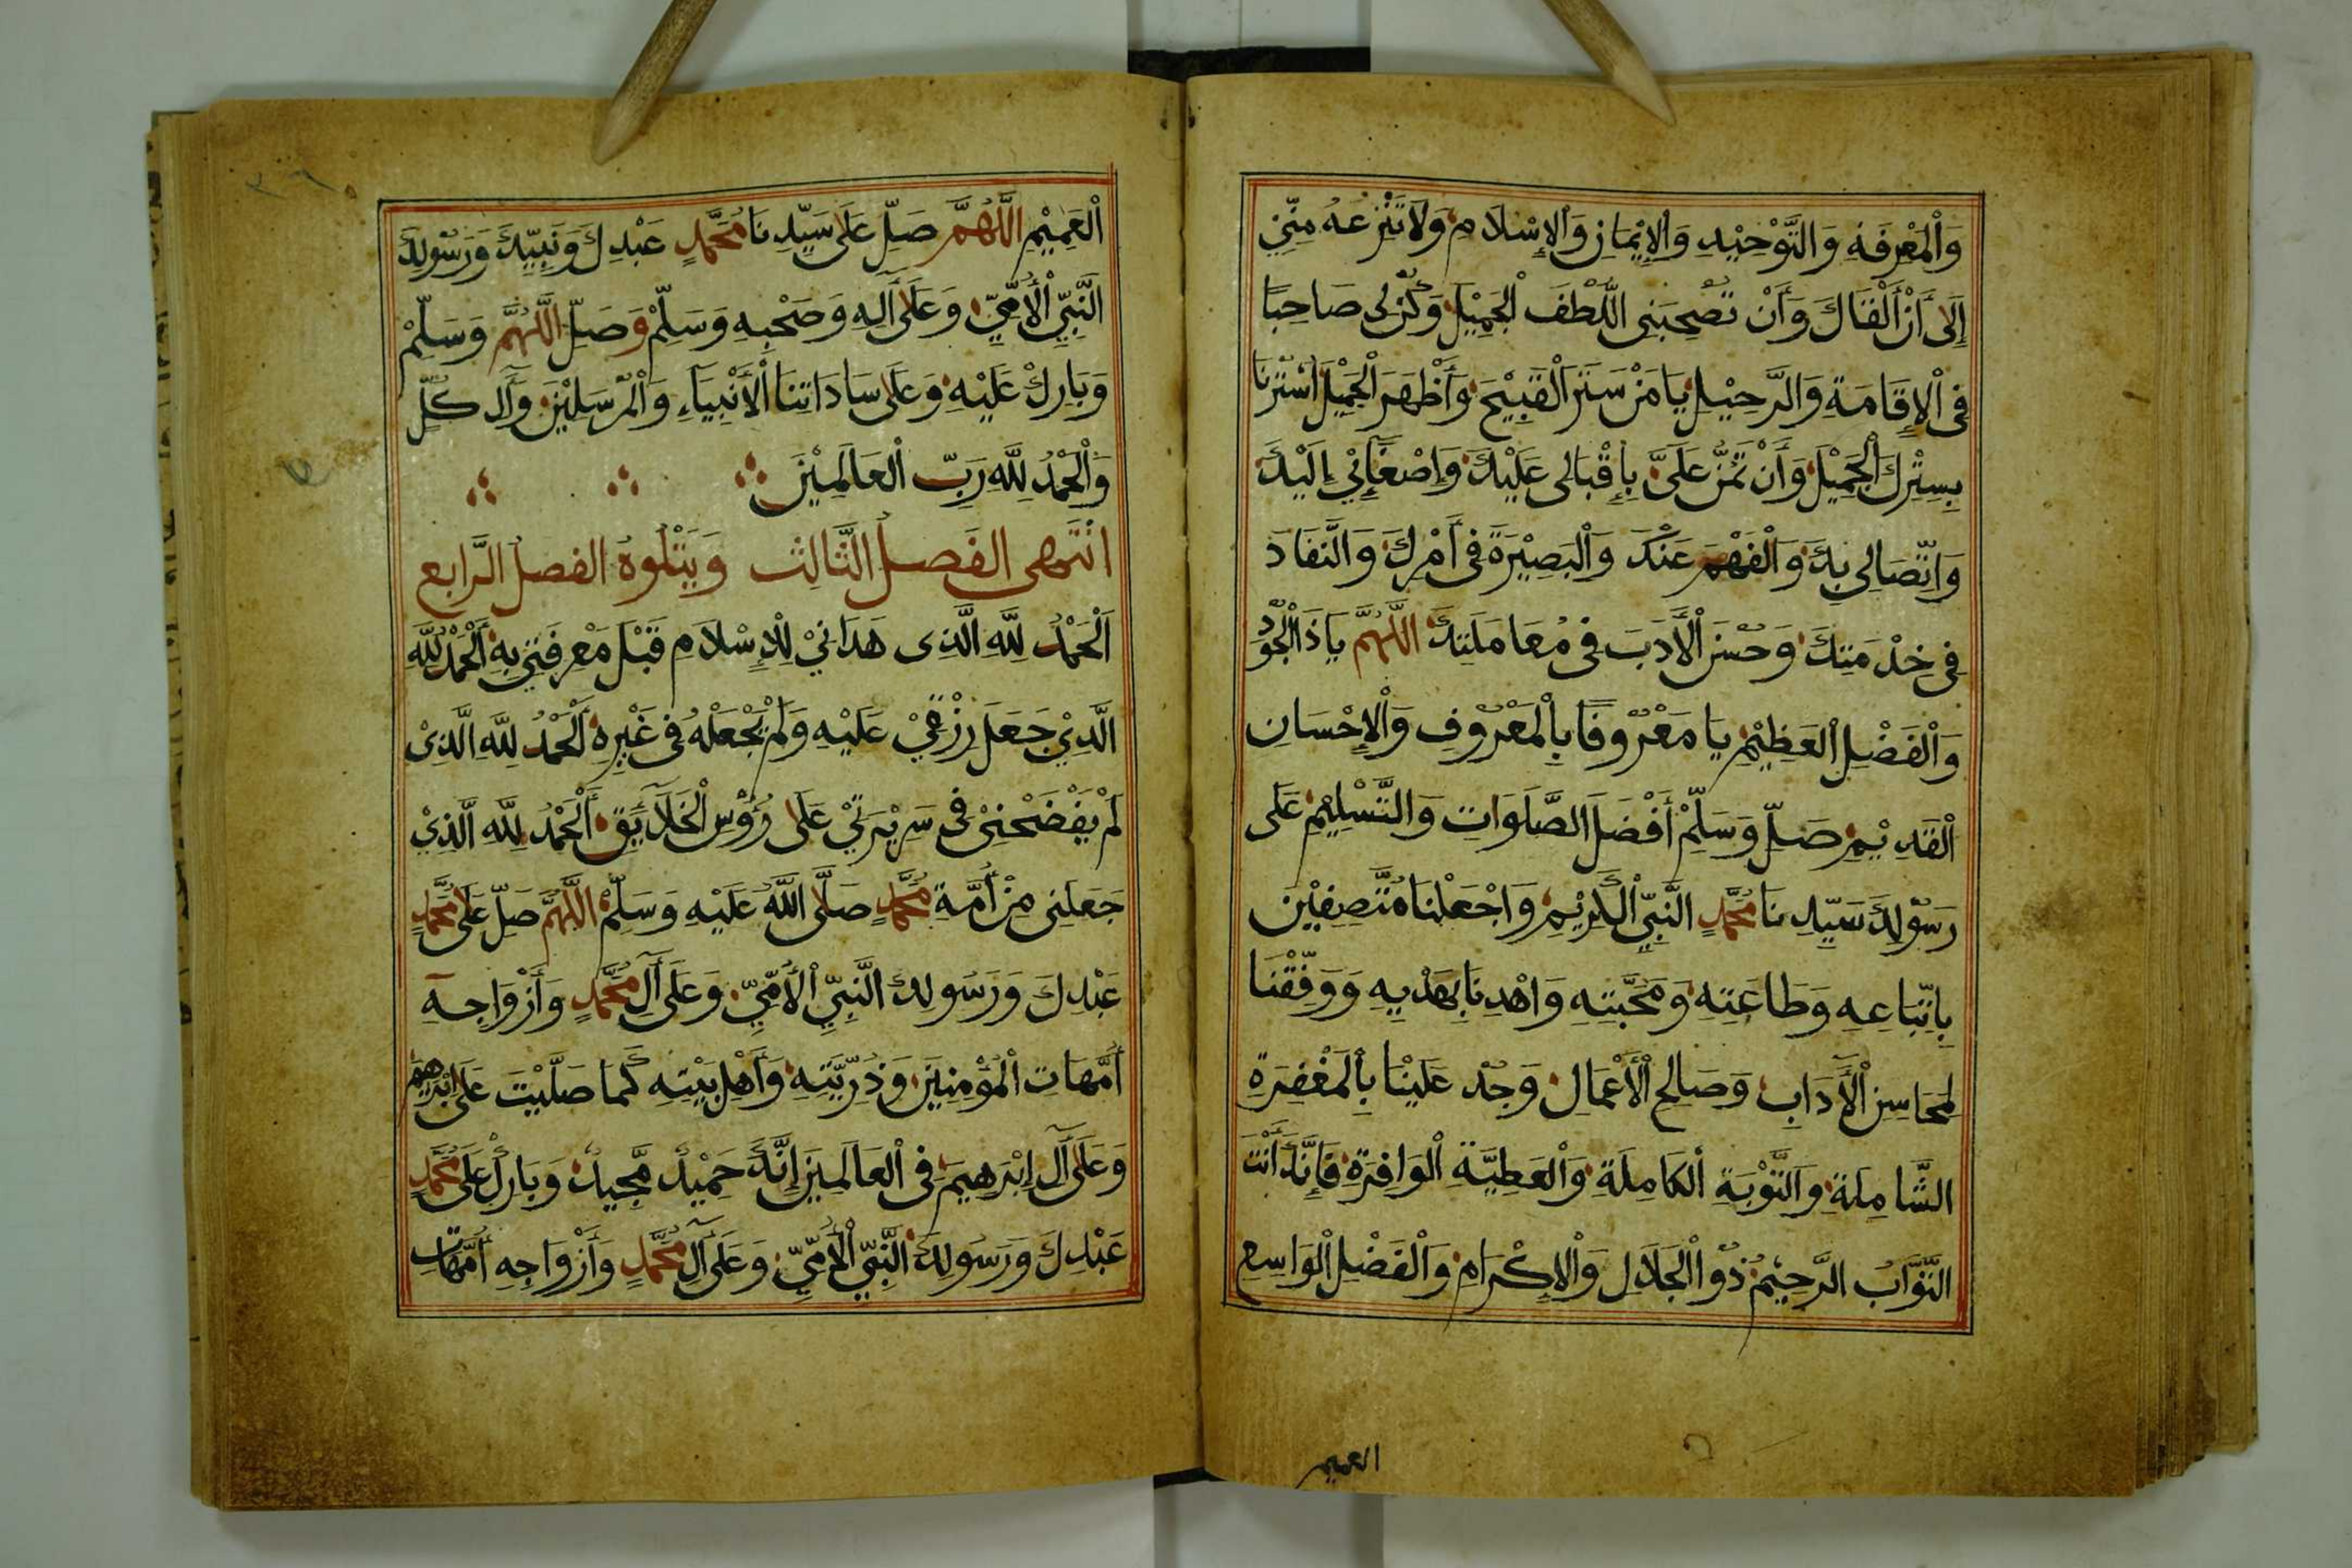 وَالْمَعْرِفَةِ وَالتَّوْحِيْدِ وَالْإِيْمَانِ وَالْإِسْلَامِ وَلَا تَنْزِعْهُ مِنِّيْ
إِلَى أَنْ أَلْقَاكَ وَأَنْ تُصْحِبَنِى اللُّطْفَ الْجَمِيْلَ وَكُنْ لِى صَاحِبًا
فِى الْإِقَامَةِ وَالرَّحِيْلِ يَا مَنْ سَتَرَ الْقَبِيْحَ وَأَظْهَرَ الْجَمِيْلَ اسْتُرْنَا
بِسِتْرِكَ الْجَمِيْلِ وَأَنْ تَمُنَّ عَلَىَّ بِإِقْبَالِى عَلَيْكَ وَإِصْغَآئِيْ إِلَيْكَ
وَاتِّصَالِى بِكَ وَالْفَهْمَ عَنْكَ وَالْبَصِيْرَةَ فِى أَمْرِكَ وَالنَّفَادَ
فِى خِدْمَتِكَ وَحُسْنَ الْأَدَبَ فِى مُعَامَلَتِكَ اللَّهُمَّ يَا ذَا الْجُوْدِ
وَالْفَضْلِ الْعَظِيْمِ يَا مَعْرُوْفًا بِالْمَعْرُوْفِ وَالْإِحْسَانِ
الْقَدِيْمِ صَلِّ وَسَلِّمْ أَفْضَلَ الصَّلَوَاتِ وَالتَّسْلِيْمِ عَلَى
رَسُوْلِكَ سَيِّدِنَا مُحَمَّدٍ النَّبِيِّ الْكَرِيْمِ وَاجْعَلْنَا مُتَّصِفِيْنَ
بِاتِّبَاعِهِ وَطَاعَتِهِ وَمَحَبَّتِهِ وَاهْدِنَا بِهَدْيِهِ وَوَفِّقْنَا
لِمَحَاسِنِ الْأَدَابِ وَصَالِحِ الْأَعْمَالِ وَجُدْ عَلَيْنَا بِالْمَغْفِرَةِ
الشَّامِلَةِ وَالتَّوْبَةِ الْكَامِلَةِ وَالْعَطِيَّةِ الْوَافِرَةِ فَإِنَّكَ أَنْتَ
التَّوَّابُ الرَّحِيْمُ ذُو الْجَلَالِ وَالْإِكْرَامِ وَالْفَضْلِ الْوَاسِعِ
العميم
الْعَمِيْمِ اللَّهُمَّ صَلِّ عَلَى سَيِّدِنَا مُحَمَّدٍ عَبْدِكَ وَنَبِيِّكَ وَرَسُوْلِكَ
النَّبِيِّ الْأُمِّيِّ وَعَلَى آلِهِ وَصَحْبِهِ وَسَلِّمْ وَصَلِّ اللَّهُمَّ وَسَلِّمْ
وَبَارِكْ عَلَيْهِ وَعَلَى سَادَاتِنَا الْأَنْبِيَآءِ وَالْمُرْسَلِيْنَ وَآلِ كُلٍّ
وَالْحَمْدُ لِلَّهِ رَبِّ الْعَالَمِيْنَ
انْتَهى الفَصلُ الثَّالِث وَيَتْلُوهُ الفصل الرَّابِع
اَلْحَمْدُ لِلَّهِ الَّذِى هَدَانِيْ لِلْإِسْلَامِ قَبْلَ مَعْرِفَتِيْ بِهِ اَلْحَمْدُ لِلَّهِ
الَّذِيْ جَعَلَ رِزْقِيْ عَلَيْهِ وَلَمْ يَجْعَلْهُ فِى غَيْرِهِ اَلْحَمْدُ لِلَّهِ الَّذِىْ
لَمْ يَفْضَحْنِىْ فِى سَرِيْرَتِيْ عَلَى رُؤُسِ الْخَلَآئِقِ اَلْحَمْدُ لِلَّهِ الَّذِيْ
جَعَلَنِى مِنْ أُمَّةِ مُحَمَّدٍ صَلَّى اللَّهُ عَلَيْهِ وَسَلَّمْ اللَّهُمَّ صَلِّ عَلَى مُحَمَّدٍ
عَبْدِكَ وَرَسُولِكَ النَّبِيِّ الْأُمِّيِّ وَعَلَى آلِ مُحَمَّدٍ وَأَزْوَاجِهِ
أُمَّهَاتِ الْمُؤْمِنِيْنَ وَذُرِّيَّتِهِ وَأَهْلِ بَيْتِهِ كَمَا صَلَّيْتَ عَلَى اِبْرٰهِيْمَ
وَعَلَى آلِ إِبْرَهِيمَ فِى الْعَالَمِيْنَ إِنَّكَ حَمِيْدٌ مَجِيدٌ وَبَارِكْ عَلَى مُحَمَّدٍ
عَبْدِكَ وَرَسُولِكَ النَّبِيِّ الْأُمِّيِّ وَعَلَى آلِ مُحَمَّدٍ وَأَزْوَاجِهِ أُمَّهَاتِ